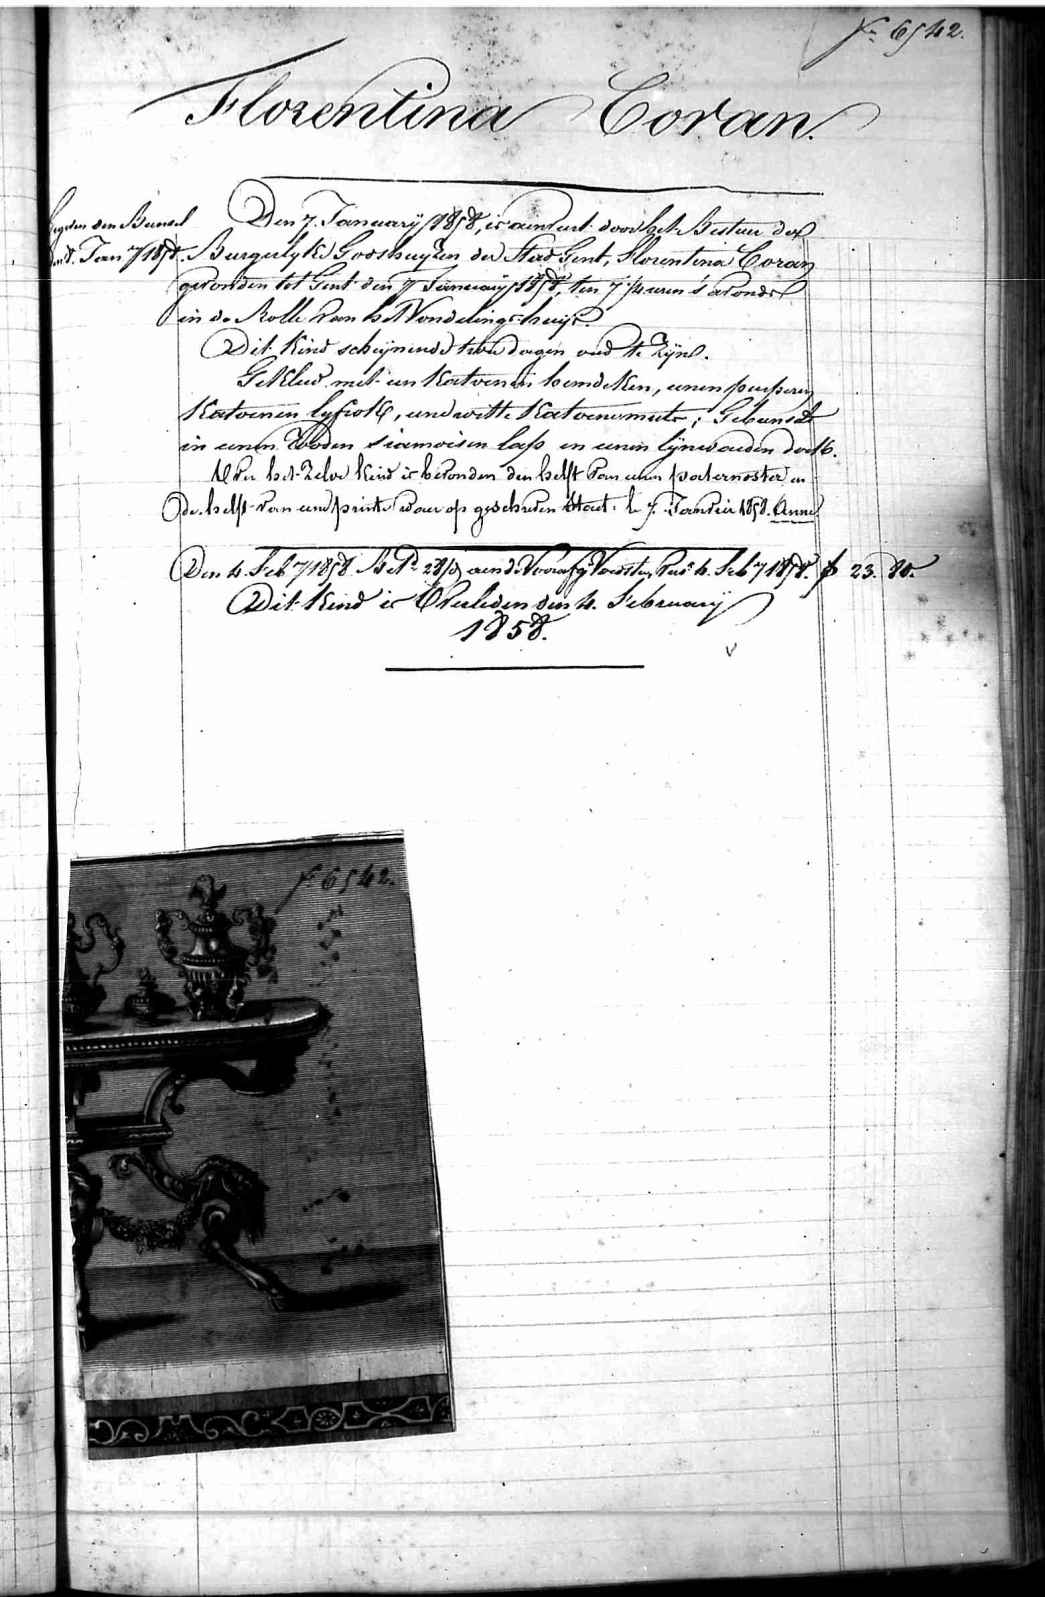 fo 6542.
Florentina Coran.
Den 7. January 1858, is aenveert door het Bestuer der
Jan 7 1858. Burgerlyke Godshuyzen der Stad Gent, Florentina Coran
gevonden tot Gent den 7 January 1858, ten 7 1/4 uren s'avonds
in de Rolle van het Vondelingshuys.
Dit Kind schynende twee dagen oud te zyn.
Gekleed met een Katoenen hemdeken, eenen purperen
Katoenen lyfrok, eene witte Katoene muts; Gebunseld
in eenen Rooden siamoisen lap en eenen lynwaeden doek.
Op het zelve Kind is bevonden den helft van eenen paternoster en
de helft van eene printe waer op geschreven staet: le 7. Janvier 1858. Anne
Den 4. Feb 7 1858. 4. Feb 7 1858. fr 23. 80.
Dit Kind is Overleden den 4. February
1858.
fo 6542.